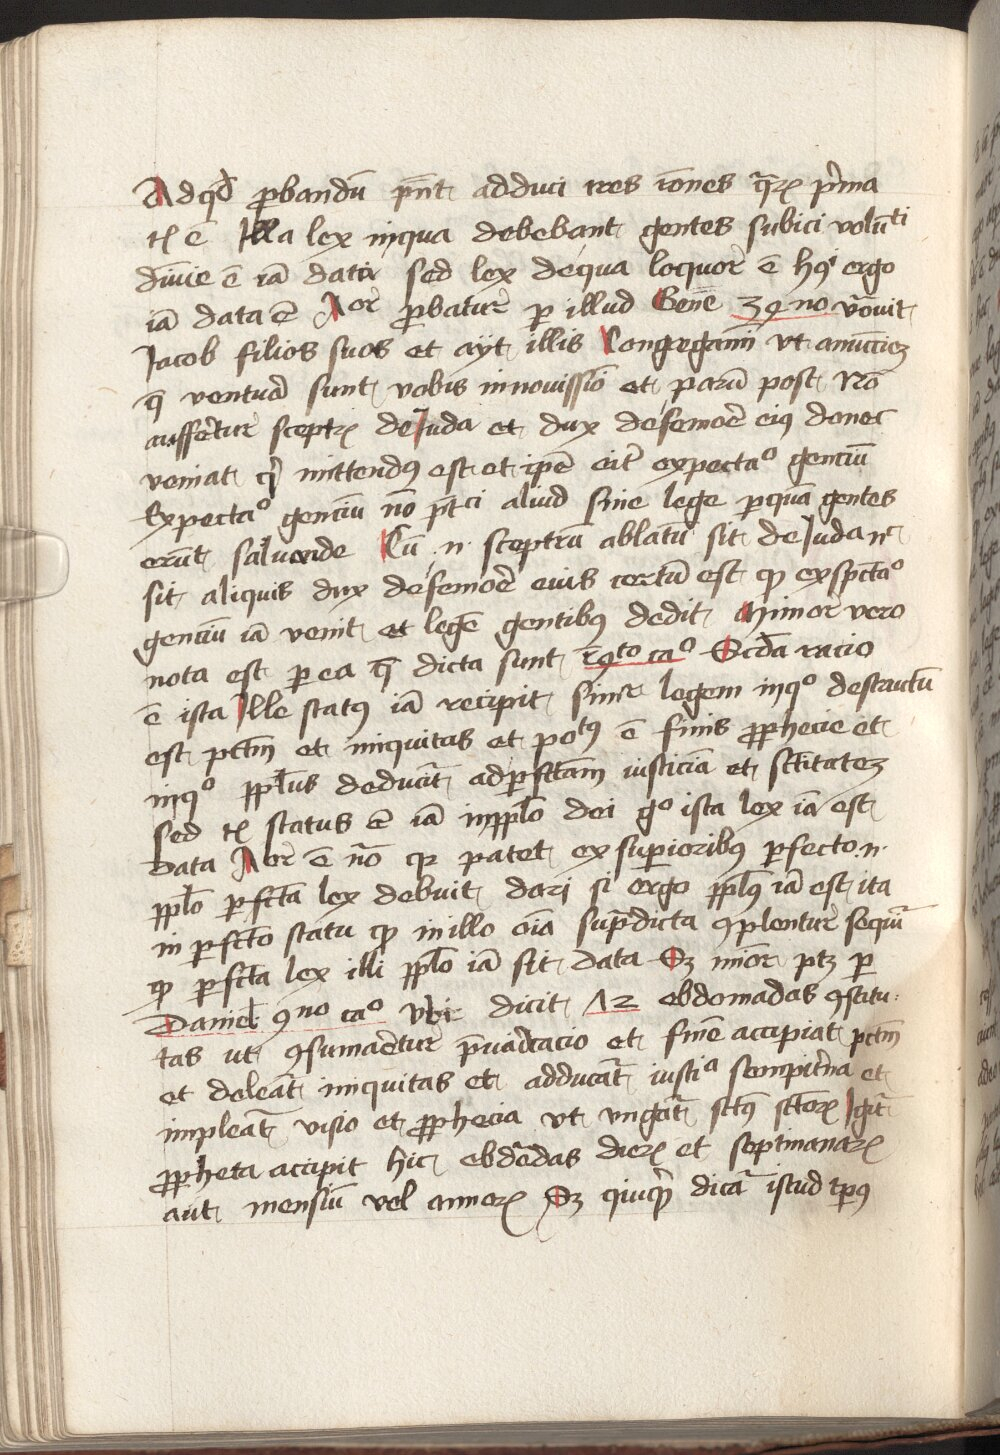 Adqd̄ ꝓbandū pn̄t adduci tres rōnes q̄rꝝ p̄ma
tl̄ ē Illa lex inqua debebant gentes subici volūti
diuīe ē iā data sed lex dequa loquor ē hꝰi ergo
iā data ē Aor ꝓbatur ꝑ illud Gen̄e 39 no vōuit
Jacob filios suos et ayt illis Congregamī vt anūcciēꝫ
q̄ ventura sunt vobis innouissīo et parū post Nō
aufferetur sceptꝝ deJuda et dux defemore eiꝰ donec
veniat qͥ mittendꝰ est et ip̄e erit expectaᵒ genciū
Expectaᵒ genciū nō p̄t ci aliud sine lege ꝑquā gentes
erūt saluande Cū .n. sceptrū ablatū sit deJuda nᶜ
sit aliquis dux defemore eius certū est qͦ exspc̄taᵒ
genciū iā venit et legē gentibꝰ dedit Minor vero
nota est ꝑ ea q̄ dicta sunt 19to caᵒ Scd̄a racio
ē ista Ille statꝰ iā recipit simͬ legem inqᵒ destructū
est pctm̄ et iniquitas et potꝰ ē finis ꝓphecie et
inqᵒ ppl̄us deducit̄ adꝑfctām iusticiā et sctītateꝫ
sed tl̄ status ē iā inppl̄o dei gᵒ ista lex iā est
data Aor ē nᵒ qꝛ patet ex superioribꝰ ꝑfecto .n.
ppl̄o ꝑfctā lex debuit dari si ergo ppl̄ꝰ iā est ita
in ꝑfctō statu qͦ in illo oīa sup̄dicta ꝯplentur sequit̄
qͦ ꝑfctā lex illi ppl̄o iā sit data Sꝫ minor ptꝫ ꝑ
Daniel 9no caᵒ vbi dicit 12 ebdomadas ꝯstitu:
tas ut ꝯsumaretur p̄uaricacio et finē accipiat pctm̄
et deleat̄ iniquitas et adducat̄ iustiᵒ sempit̄na et
impleat̄ visio et ꝓphecia vt vngat̄ sctꝰ sctōrꝝ Igit̄
ꝓpheta accipit hic ebdōdas dierꝝ et septimanarꝝ
aut mensiū vel annorꝝ Sꝫ qiuqꝫ dicat̄ istud tp̄ꝰ